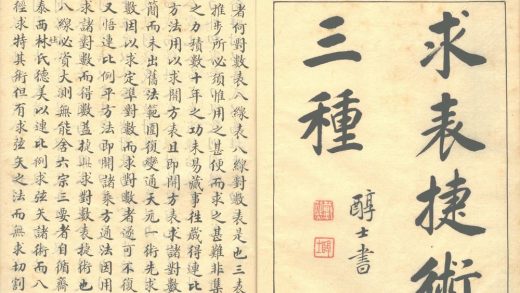 求表捷術
三種
醇士書
者何對數表八線表八線對數表是也三表
推步所必須惟用之甚便而求之甚難非集
之力積數十年之功未易蕆事往歲得連比
方法用以求開方表且即開方表求諸對數
簡而未出舊法範圍復變通天元一術先求
數因以求定準對數而求對數者遂可不復
又悟連比例平方法即開諸乘方通法因用
求諸對數而得數益捷與求對數表捷術也
八線必資大測無能舍六宗三要者自循齋
泰西林氏德美以連比例求弦矢諸術而八
徑求特其術但有求弦矢之法而無求切割